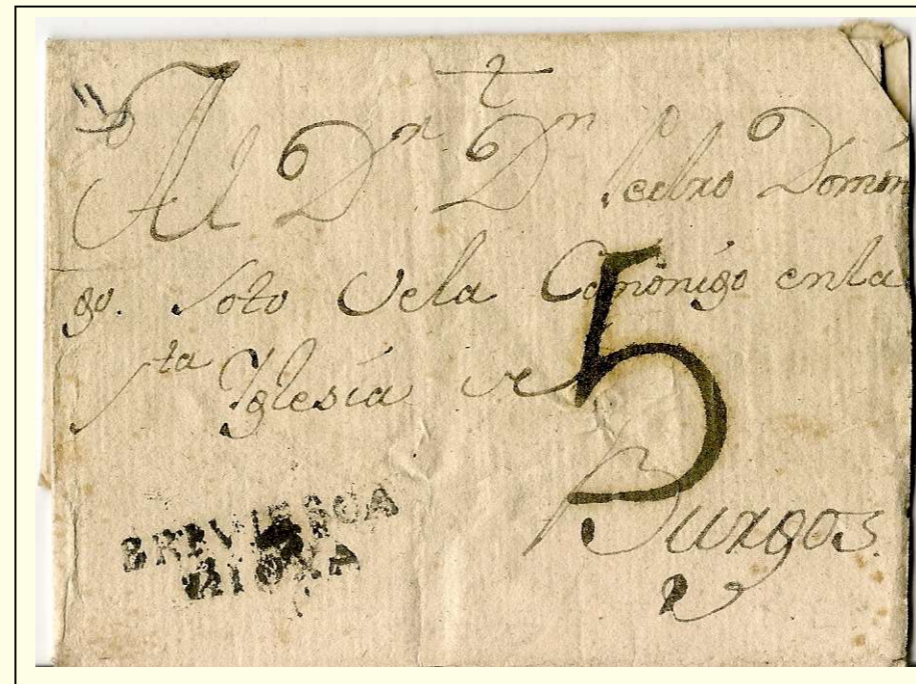 Al Dn Dn Pedro Domin
go. Soto Vela Canonigo en la
Sta Yglesia de
5
Burgos.
BRIVIESCA
RIOXA